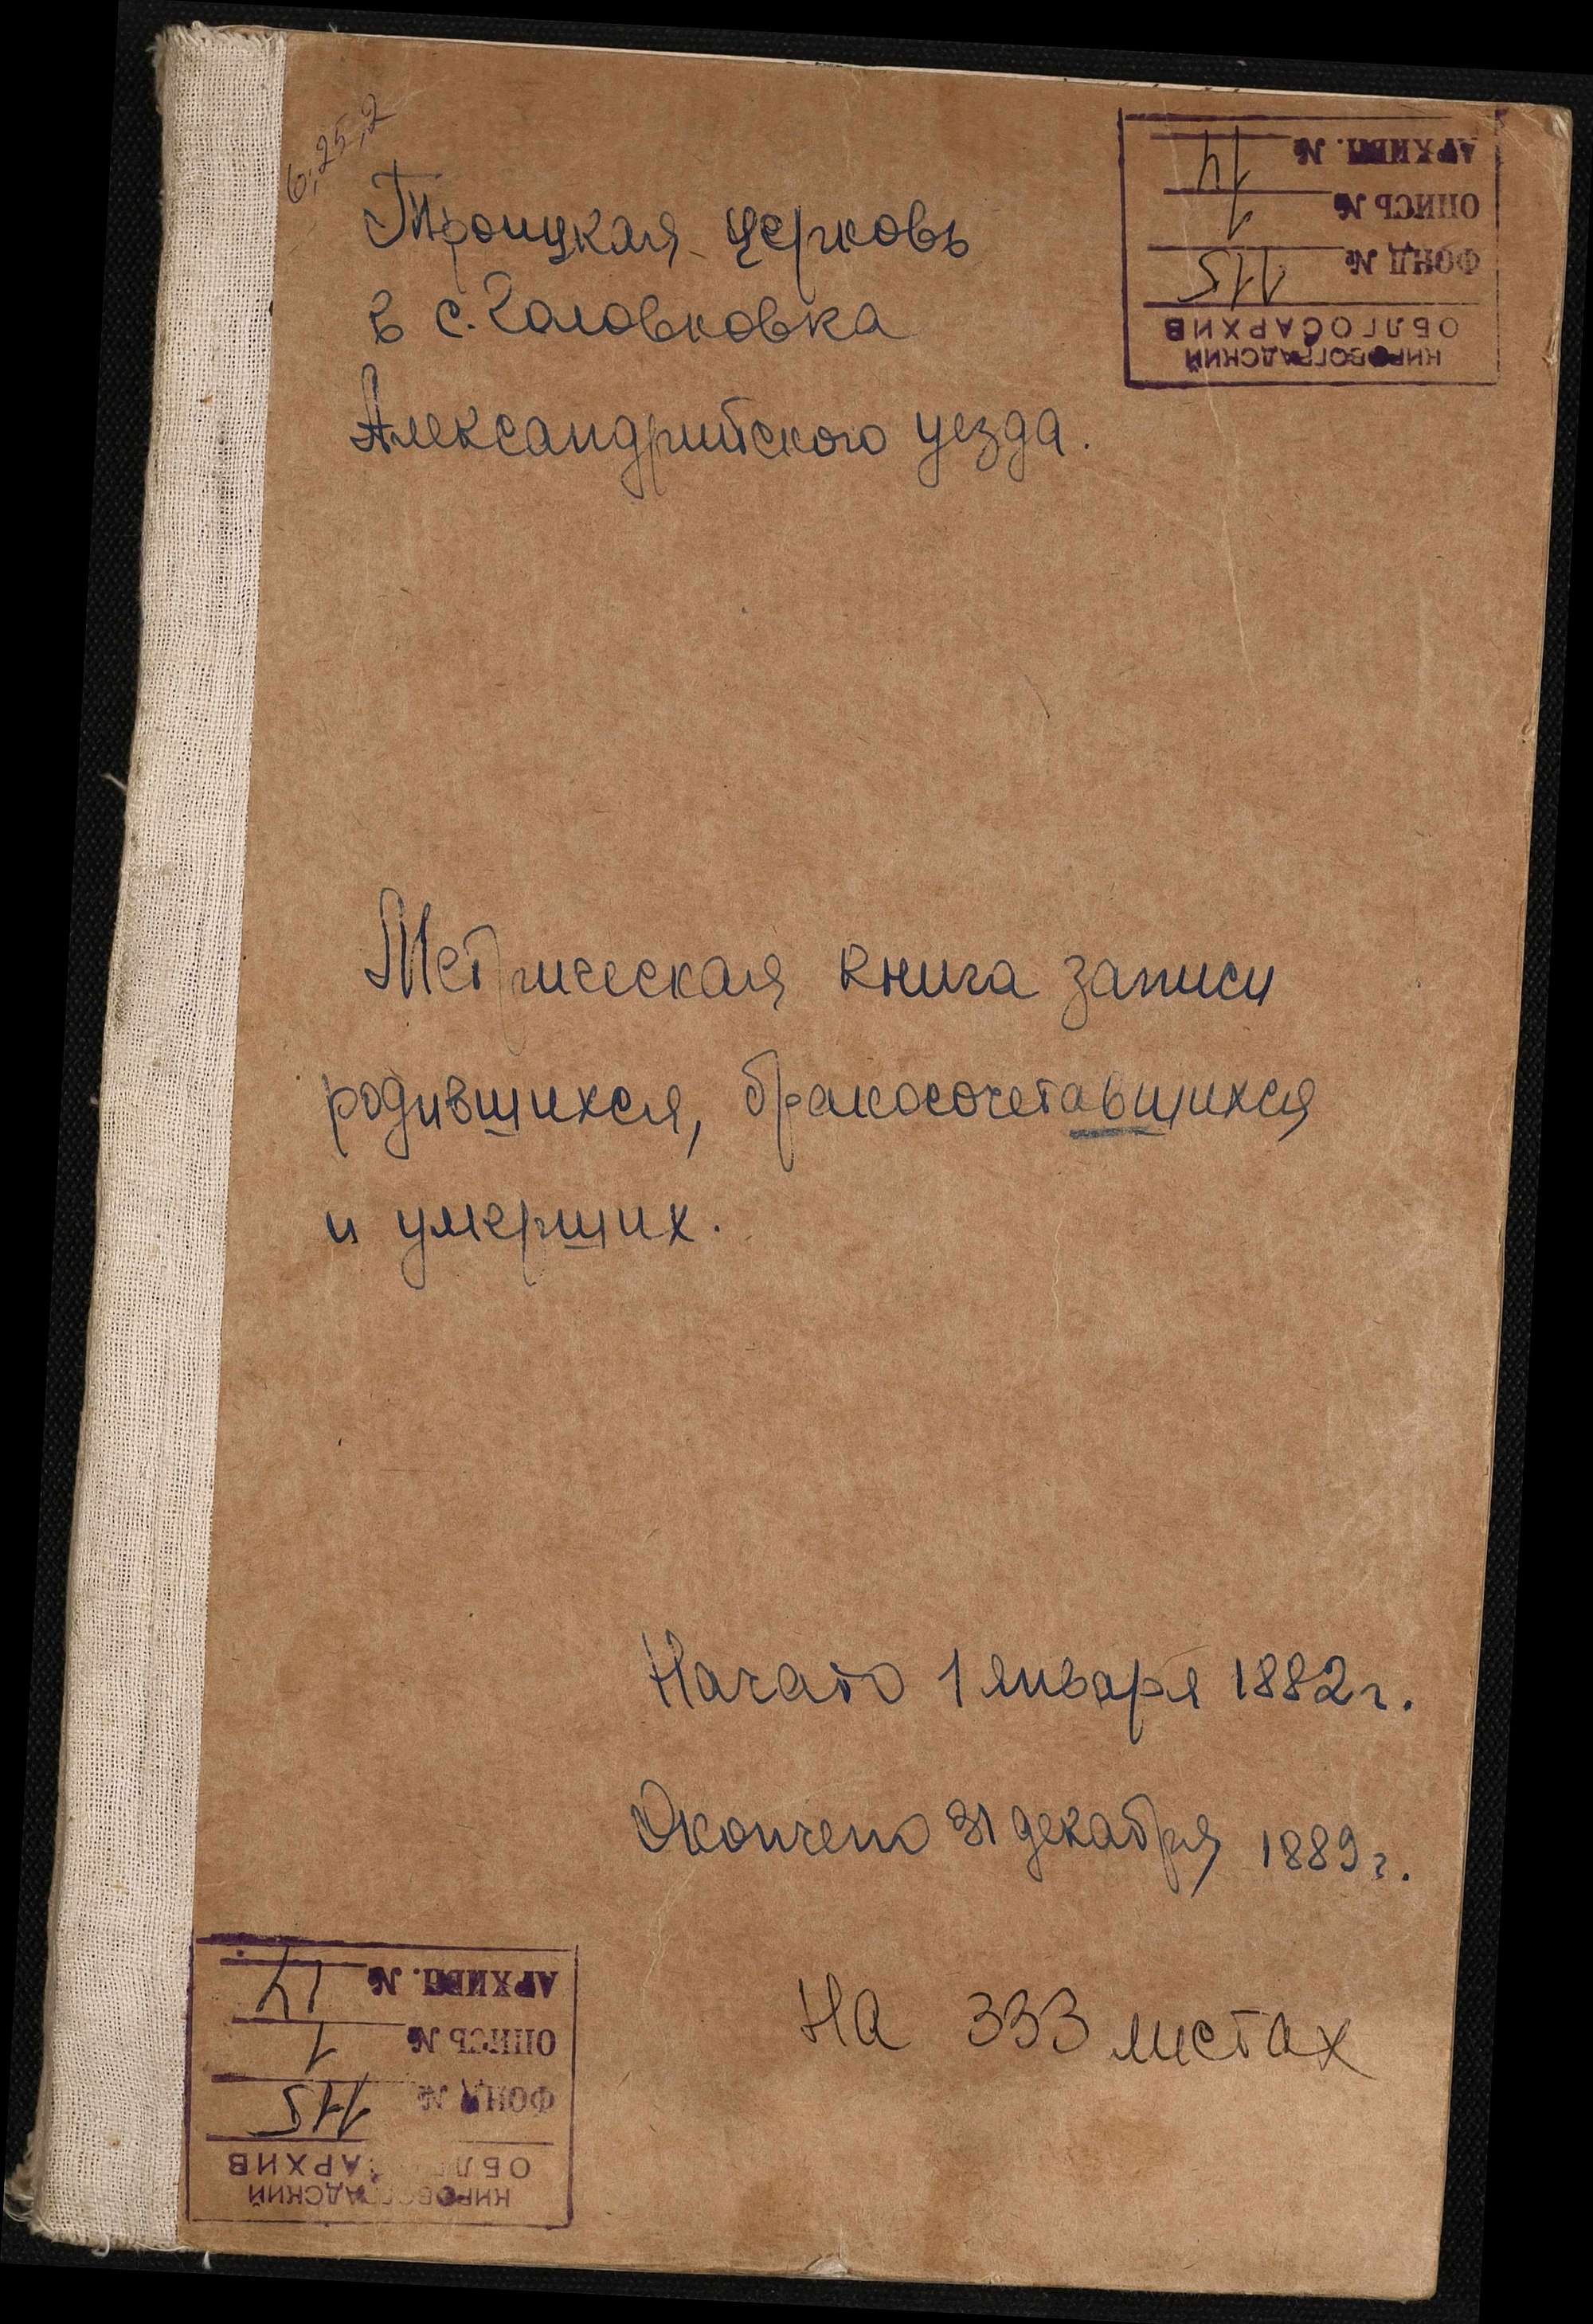 6,25,2
Троицкая церковь
в с. Головковка
Александрийского уезда.
КИРОВОГРАДСКИЙ
ОБЛГОСАРХИВ
ФОНД № 115
ОПИСЬ № 1
АРХИВН. № 14
Метрическая книга записи
родившихся, бракосочетавшихся
и умерших.
Начато 1 января 1882 г.
Окончено 31 декабря 1889 г.
На 333 листах
КИРОВОГРАДСКИЙ
ОБЛГОСАРХИВ
ФОНД № 115
ОПИСЬ № 1
АРХИВН. № 14